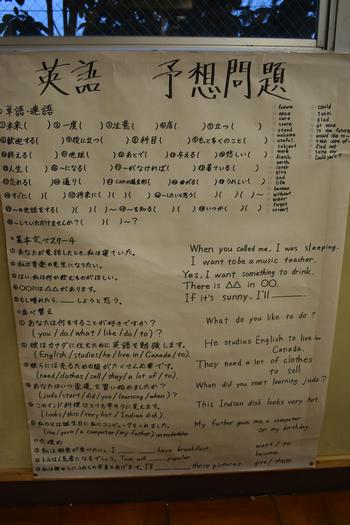 英語 予想問題
単語・連語
①未来( ) ②一度( ) ③注意( ) ④店( ) ⑤立つ( )
⑥歓迎する( ) ⑦役に立つ( ) ⑧科目( ) ⑨もっと多くのこと( )
⑩終える( ) ⑪地球( ) ⑫あとで( ) ⑬与える( ) ⑭悲しい( )
⑮人生( ) ⑯〜になる( ) ⑰〜がなければ( ) ⑱着ている( )
⑲忘れる( ) ⑳通り( ) canの過去形( ) 曲がる( ) うれしい( )
すぐに( )( ) 将来に( )( )( ) 〜したいと思う( )( )( )
〜の世話をする( )( )( )〜 〜を知る( )( ) いつか( )( )
〜していただけませんか?( )( )〜?
future
once
care
store
stand
welcome
useful
subject
more
finish
earth
later
give
sad
life
become
without
wear
forget
street
could
turn
glad
at once
in the future
would like to
take care of
find out
some day
Could you〜?
基本文マスター4
① あなたが電話したとき、私は寝ていた。 When you called me, I was sleeping.
② 私は音楽の先生になりたい。 I want to be a music teacher.
③ はい、私は何か飲むものがほしい。 Yes, I want something to drink.
④ ○○には△△があります。 There is △△ in ○○.
⑤ もし晴れたら、＿＿しようと思う。 If it's sunny, I'll ＿＿.
並べ替え
① あなたは何をすることが好きですか?
(you / do / what / like / do / to)? What do you like to do?
② 彼はカナダに住むために英語を勉強します。
(English / studies / he / live in / Canada / to). He studies English to live in Canada.
③ 彼らには売るための服がたくさん必要です。
(need / clothes / sell / they / a lot of / to). They need a lot of clothes to sell
④ あなたはいつ柔道を習い始めましたか?
(judo / start / did / you / learning / when)? When did you start learning judo?
⑤ このインド料理はとてもからそうに見えます。
(looks / this / very hot / Indian dish). This Indian dish looks very hot.
⑥ 私の父は誕生日に私にコンピュータをくれました。
(me / gave / a computer / my father) on my birthday. My father gave me a computer on my birthday.
穴埋め
① 私は朝食が食べたい。 I ＿＿ ＿＿ have breakfast. want / to
② トムは人気者になるでしょう。 Tom will ＿＿ popular. become
③ 私は彼らにこれらの写真をあげます。 I'll ＿＿ ＿＿ these pictures. give / them